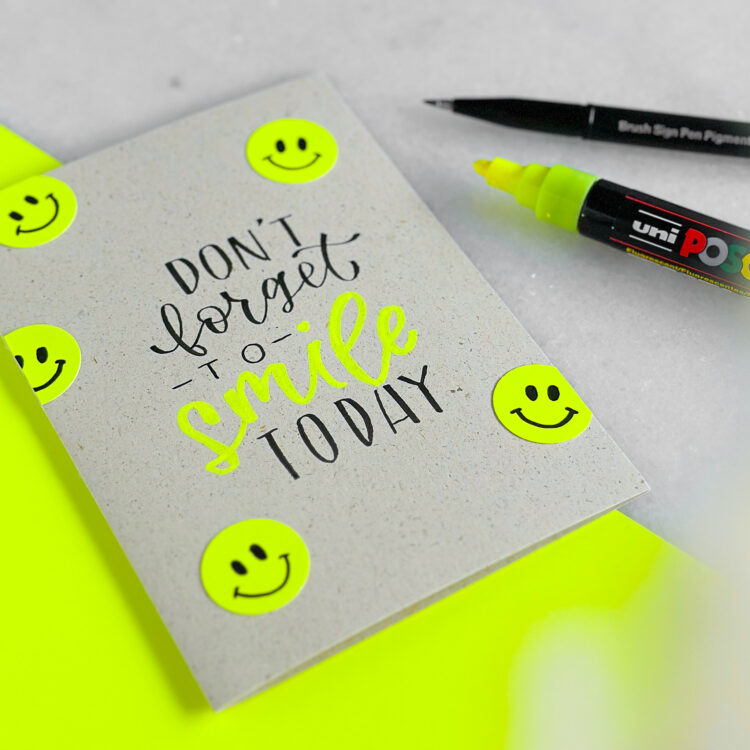 DON'T
forget
-TO-
smile
TODAY
Brush Sign Pen Pigment
uni POSC
Fluorescent/Fluorescentes